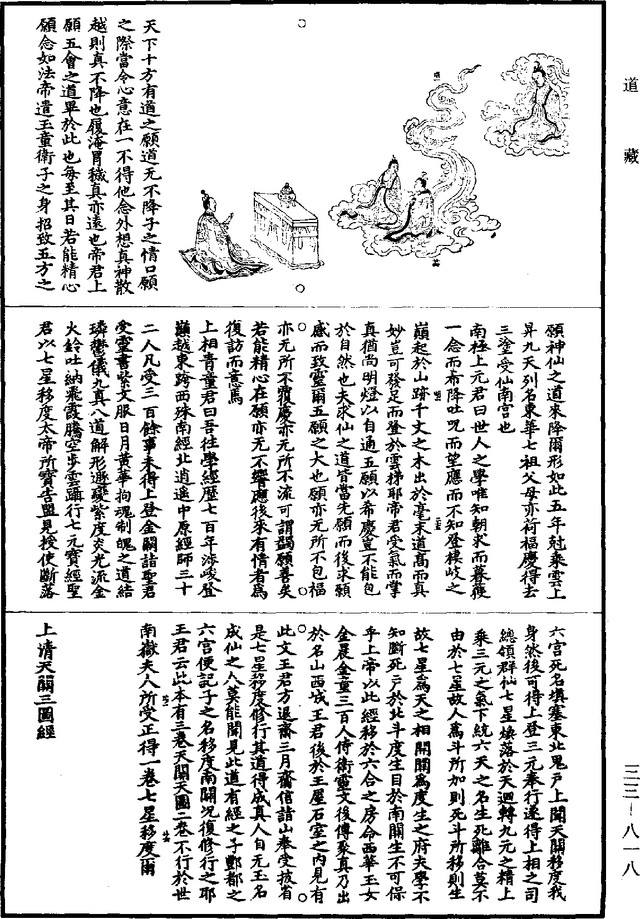 道藏
天下十方有道之願道无不降子之情口願
之際當令心意在一不得他念外想真神散
越則真不降也履淹冒穢真亦遠也帝君上
願五會之道畢於此也每至其日若能精心
願念如法帝遣玉童衛子之身招致五方之
願神仙之道來降爾形如此五年尅乘雲上
昇九天列名東華七祖父母亦荷福慶得去
三塗受仙南宫也
南極上元君曰世人之學唯知朝求而暮獲
一念而希降吐呪而望應而不知登樓岐之
巔起於山跡千丈之木出於毫末道高而真
妙豈可發足而登於雲梯耶帝君受氣而掌
真猶尚明燈以自通五願以希慶豈不能包
於自然也夫求仙之道皆當先願而後求願
感而致靈爾五願之大也願亦无所不包福
亦无所不覆慶亦无所不流可謂蠲願善矣
若能精心在願亦无不嚮應後來有情者為
復訪而意焉
上相青童君曰吾往學經歷七百年涉峻登
巔越東跨西殊南經北逍遥中原經師三十
二人凡受三百餘事未得上登金闕詣聖君
受靈書紫文服日月黄華拘魂制魄之道結
璘鬱儀九真八道解形遯變紫度炎光流金
火鈴吐納飛霞騰空步雲躡行七元寳經聖
君以七星移度太帝所寳告盟見授使斷落
六宫死名填塞東北鬼戸上開天關移度我
身然後可得上登三元奉行遂得上相之司
總領群仙七星煥落於天迴轉九元之精上
乘三元之氣下統六天之名生死離合莫不
由於七星故人為斗所加則死斗所移則生
故七星為天之相開關為度生之府夫學不
知斷死戸於北斗度生目於南關生不可保
乎上帝以此經移於六合之房命西華玉女
金晨金童三百人侍衛靈文後傳衆真乃出
於名山西城王君後於王屋石室之内見有
此文王君方退齋三月齎信詣山奉受披省
是七星移度修行其道得成真人自无玉名
成仙之人莫能聞見此道有經之子酆都之
六宫便記子之名移度南關况復修行之耶
王君云此本有三卷天關天圖二卷不行於世
南嶽夫人所受正得一卷七星移度爾
上清天關三圖經
三三—八一八